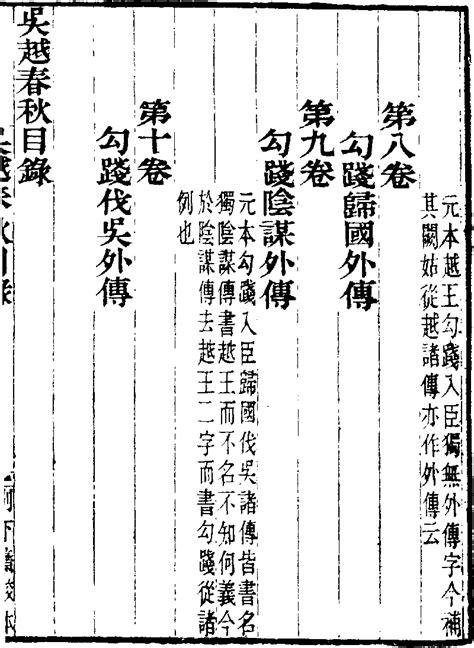 元本越王勾踐入臣獨無外傳字今補
其闕姑從越諸傳亦作外傳云
第八卷
勾踐歸國外傳
第九卷
勾踐陰謀外傳
元本勾踐入臣歸國伐吳諸傳皆書名
獨陰謀傳書越王而不名不知何義今
於陰謀傳去越王二字而書勾踐從諸
例也
第十卷
勾踐伐吳外傳
吳越春秋目錄